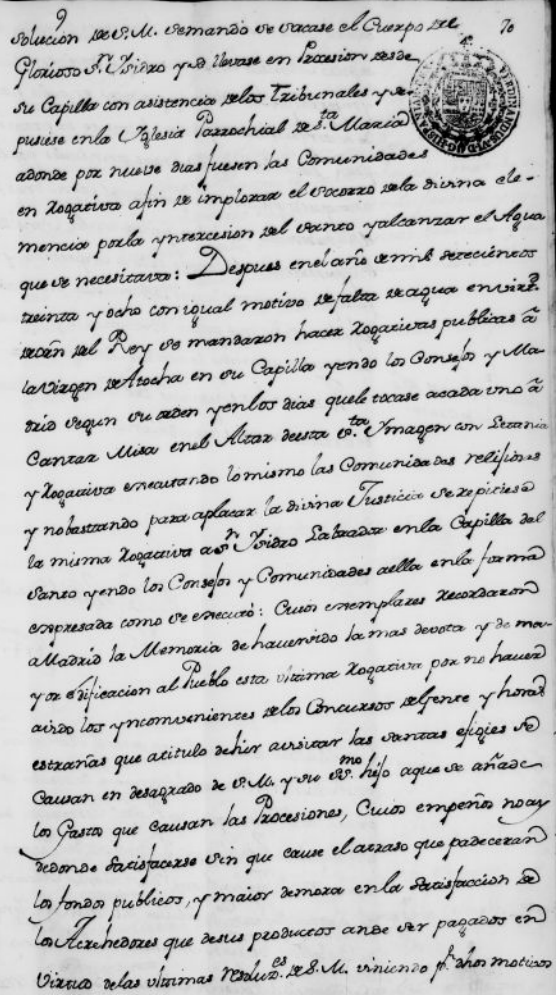 9
70
solucion de S.M. se mando se sacase el Cuerpo del
Glorioso Sn. Ysidro y se llevase en Procesion desde
su Capilla con asistencia de los Tribunales y se
pusiese en la Yglesia Parrochial de Sta. Maria
adonde por nueve dias fuesen las Comunidades
en Rogativa afin de implorar el socorro de la divina cle-
mencia por la yntercesion del Santo y alcanzar el Agua
que se necesitava: Despues en el año de mil setecientos
treinta y ocho con igual motivo de falta de agua en virtd.
de orn. del Rey se mandaron hacer Rogativas publicas â
la Virgen de Atocha en su Capilla yendo los Consejos y Ma-
drid segun su orden y en los dias que le tocase a cada uno â
Cantar Misa en el Altar de esta Sta. Ymagen con Letania
y Rogativa executando lo mismo las Comunidades relijiosas
y no bastando para aplacar la divina Justicia se repitiese
la misma Rogativa a Sn. Ysidro Labrador en la Capilla del
Santo yendo los Consejos y Comunidades a ella en la forma
expresada como se executó: Cuios exemplares recordaron
a Madrid la Memoria de haver sido la mas devota y de ma-
yor edificacion al Pueblo esta ultima Rogativa por no haver
avido los ynconvenientes de los Concursos de Jente y horas
estrañas que a titulo de hir a visitar las santas efigies se
Causan en desagrado de S.M. y su SSmo. hijo a que se añade
los Gastos que causan las Procesiones, Cuios empeños no ay
de donde satisfacerse sin que cause el atraso que padeceran
los fondos publicos, y maior demora en la satisfaccion de
los Acrehedores que de sus productos an de ser pagados en
Virtud de las ultimas resoluzes. de S.M. viniendo pr. dhos motivos